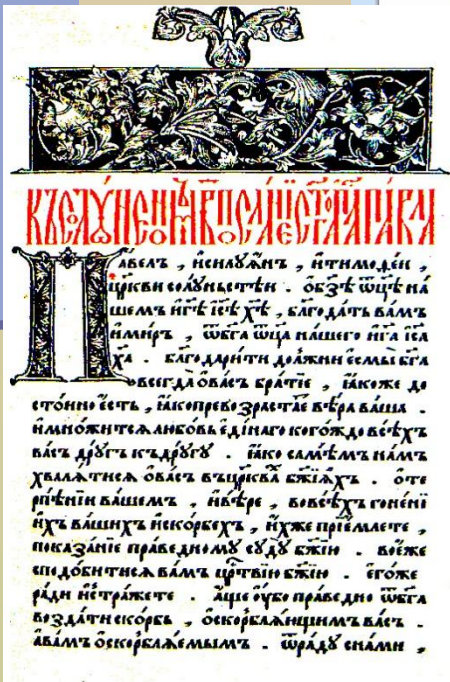 КЪСОЛУ́НЄѠМЪ В҃ ПОСЛА́НІЄ СТ҃А́ГѠ АПⷭ҇ЛА ПА́ВЛА
Па́велъ , и҆силꙋа́нъ , и҆тимоѳе́й ,
цр҃кви солꙋ́ньстѣй . ѻ҆бз҃ѣ ѿц҃ѣ на́
шемъ и҆гдⷭ҇ѣ і҆с҃ѣ хⷭ҇ѣ , благода́ть ва́мъ
и҆ми́ръ , ѿбг҃а ѿц҃а на́шего и҆гдⷭ҇а і҆с҃а
хⷭ҇а . благодари́ти до́лжни є҆смы̀ бг҃а
всегда̀ ѻ҆ва́съ бра́тіє , ꙗ҆́коже до
сто́йно є҆́сть , ꙗ҆́ко превозраста́єтъ вѣ́ра ва́ша .
и҆мно́житсѧ любо́вь є҆ди́наго кого́ждо всѣ́хъ
ва́съ дрꙋ́гъ къдрꙋ́гꙋ . ꙗ҆́ко самѣ́мъ на́мъ
хвали́тисѧ ѻ҆ва́съ въцр҃ква́хъ бж҃їихъ . ѻ҆те
рпѣ́нїи ва́шемъ , и҆вѣ́ре , вовсѣ́хъ гоне́нї
и҆хъ ва́шихъ и҆ско́рбехъ , и҆́хже прїе́млете ,
показа́нїе пра́ведномꙋ сꙋдꙋ̀ бж҃їю . воє҆́же
сподо́битисѧ ва́мъ црⷭ҇твїю бж҃їю . є҆гѡ́же
ра́ди и҆стра́жете . а҆́ще ᲂу҆́бо пра́ведно ѿбг҃а
возда́ти ско́рбь , ѻ҆скорблѧ́ющимъ ва́съ .
а҆ва́мъ ѻ҆скорблѧ́ємымъ . ѿра́дꙋ сна́ми ,